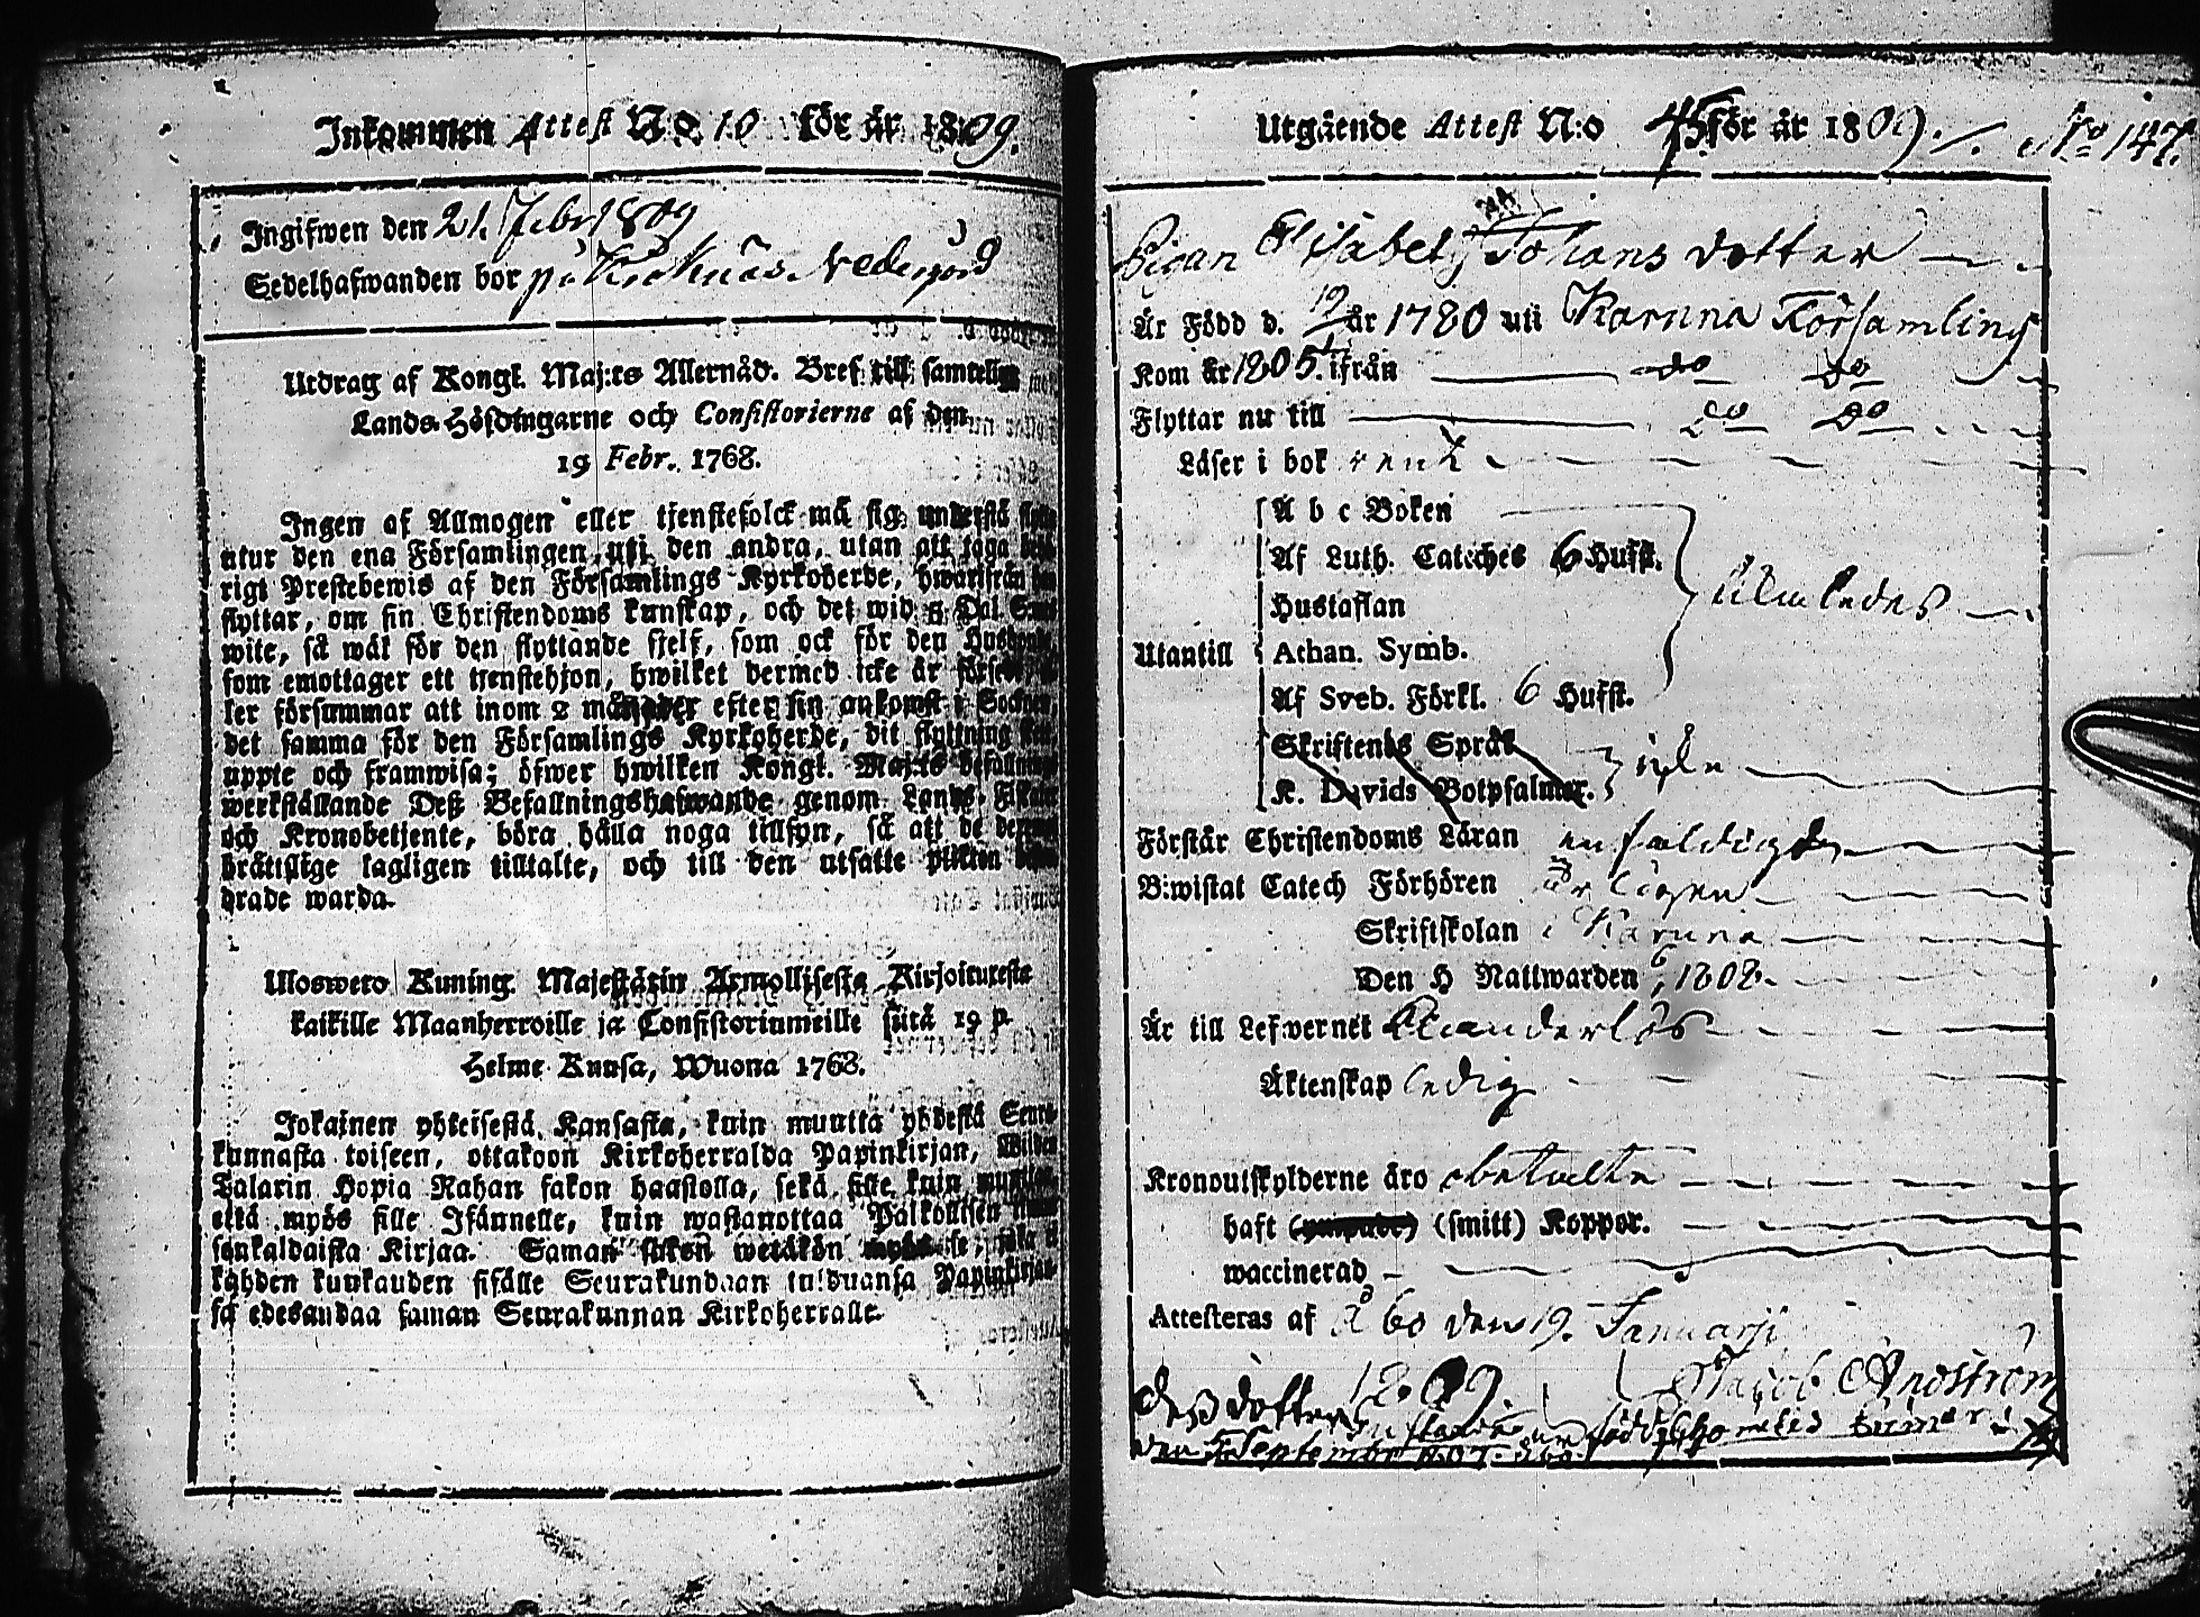 Inkommen Attest N:o 10 för år 1809.
Ingifwen den 21. Febr 1809
Sedelhafwanden bor på Nedergård
Utdrag af Kongl. Maj:ts Allernåd. Bref till samtelige
Lands-Höfdingarne och Consistorierne af den
19 Febr. 1768.
Ingen af Allmogen eller tjenstefolck må sig understå
utur den ena Församlingen uti den andra, utan att taga
rigt Prestebewis af den Församlings Kyrkoherde, hwarifrån
flyttar, om sin Christendoms kunskap, och det wid Dal. S:mts
wite, så wäl för den flyttande sjelf, som ock för den
som emottager ett tjenstehjon, hwilket dermed icke är
ler försummar att inom 2 månader efter sin ankomst i Socknen,
det samma för den Församlings Kyrkoherde, dit flyttning
uppte och framwisa; öfwer hwilken Kongl. Maj:ts befallnings
werkställande Deß Befallningshafwande genom Lands-
och Kronobetjente, böra hålla noga tillsyn, så att de
brättslige lagligen tilltalte, och till den utsatte plikten
drade warda.
Uloswero Kuning. Majestätin Armollisesta Kirjoituxesta
kaikille Maanherroille ja Consistoriumeille siitä 19 p.
Helme Kuusa, Wuona 1768.
Jokainen yhteisestä Kansasta, kuin muutta yhdestä Seura-
kunnasta toiseen, ottakoon Kirkoherralda Papinkirjan,
Talarin Hopia Rahan sakon haastolla, sekä sille kuin
että myös sille Isännelle, kuin wastanottaa Palkollisen
senkaldaista Kirjaa. Saman sakon wetäkön
kahden kuukauden sisälle Seurakundaan tulduansa
sa edesandaa saman Seurakunnan Kirkoherralle.
Utgående Attest N:o 45 för år 1809. N:o 147.
Pigan Elisabeth Johans dotter
Är Född d. 19 år 1780 uti Karuna Församling
Kom år 1805. ifrån do do
Flyttar nu till do do
Läser i bok rent
A b c Boken
Af Luth. Cateches 6 Hufst.
Hustaflan
Utantill Athan. Symb.
Af Sveb. Förkl. 6 Hufst.
Skriftenes Språk
K. Davids Botpsalmer.
Förstår Christendoms Läran enfaldigt
Biwistat Catech Förhören
Skriftskolan i Karuna
Den H Nattwarden 1808.
Är till Lefwernet
Äktenskap ledig
Kronoutskylderne äro obetalte
haft (smitt) Koppor.
waccinerad
Attesteras af Åbo den 19. Januarji
1809. Jacob
Deß dotter född
den Septembr 1807.